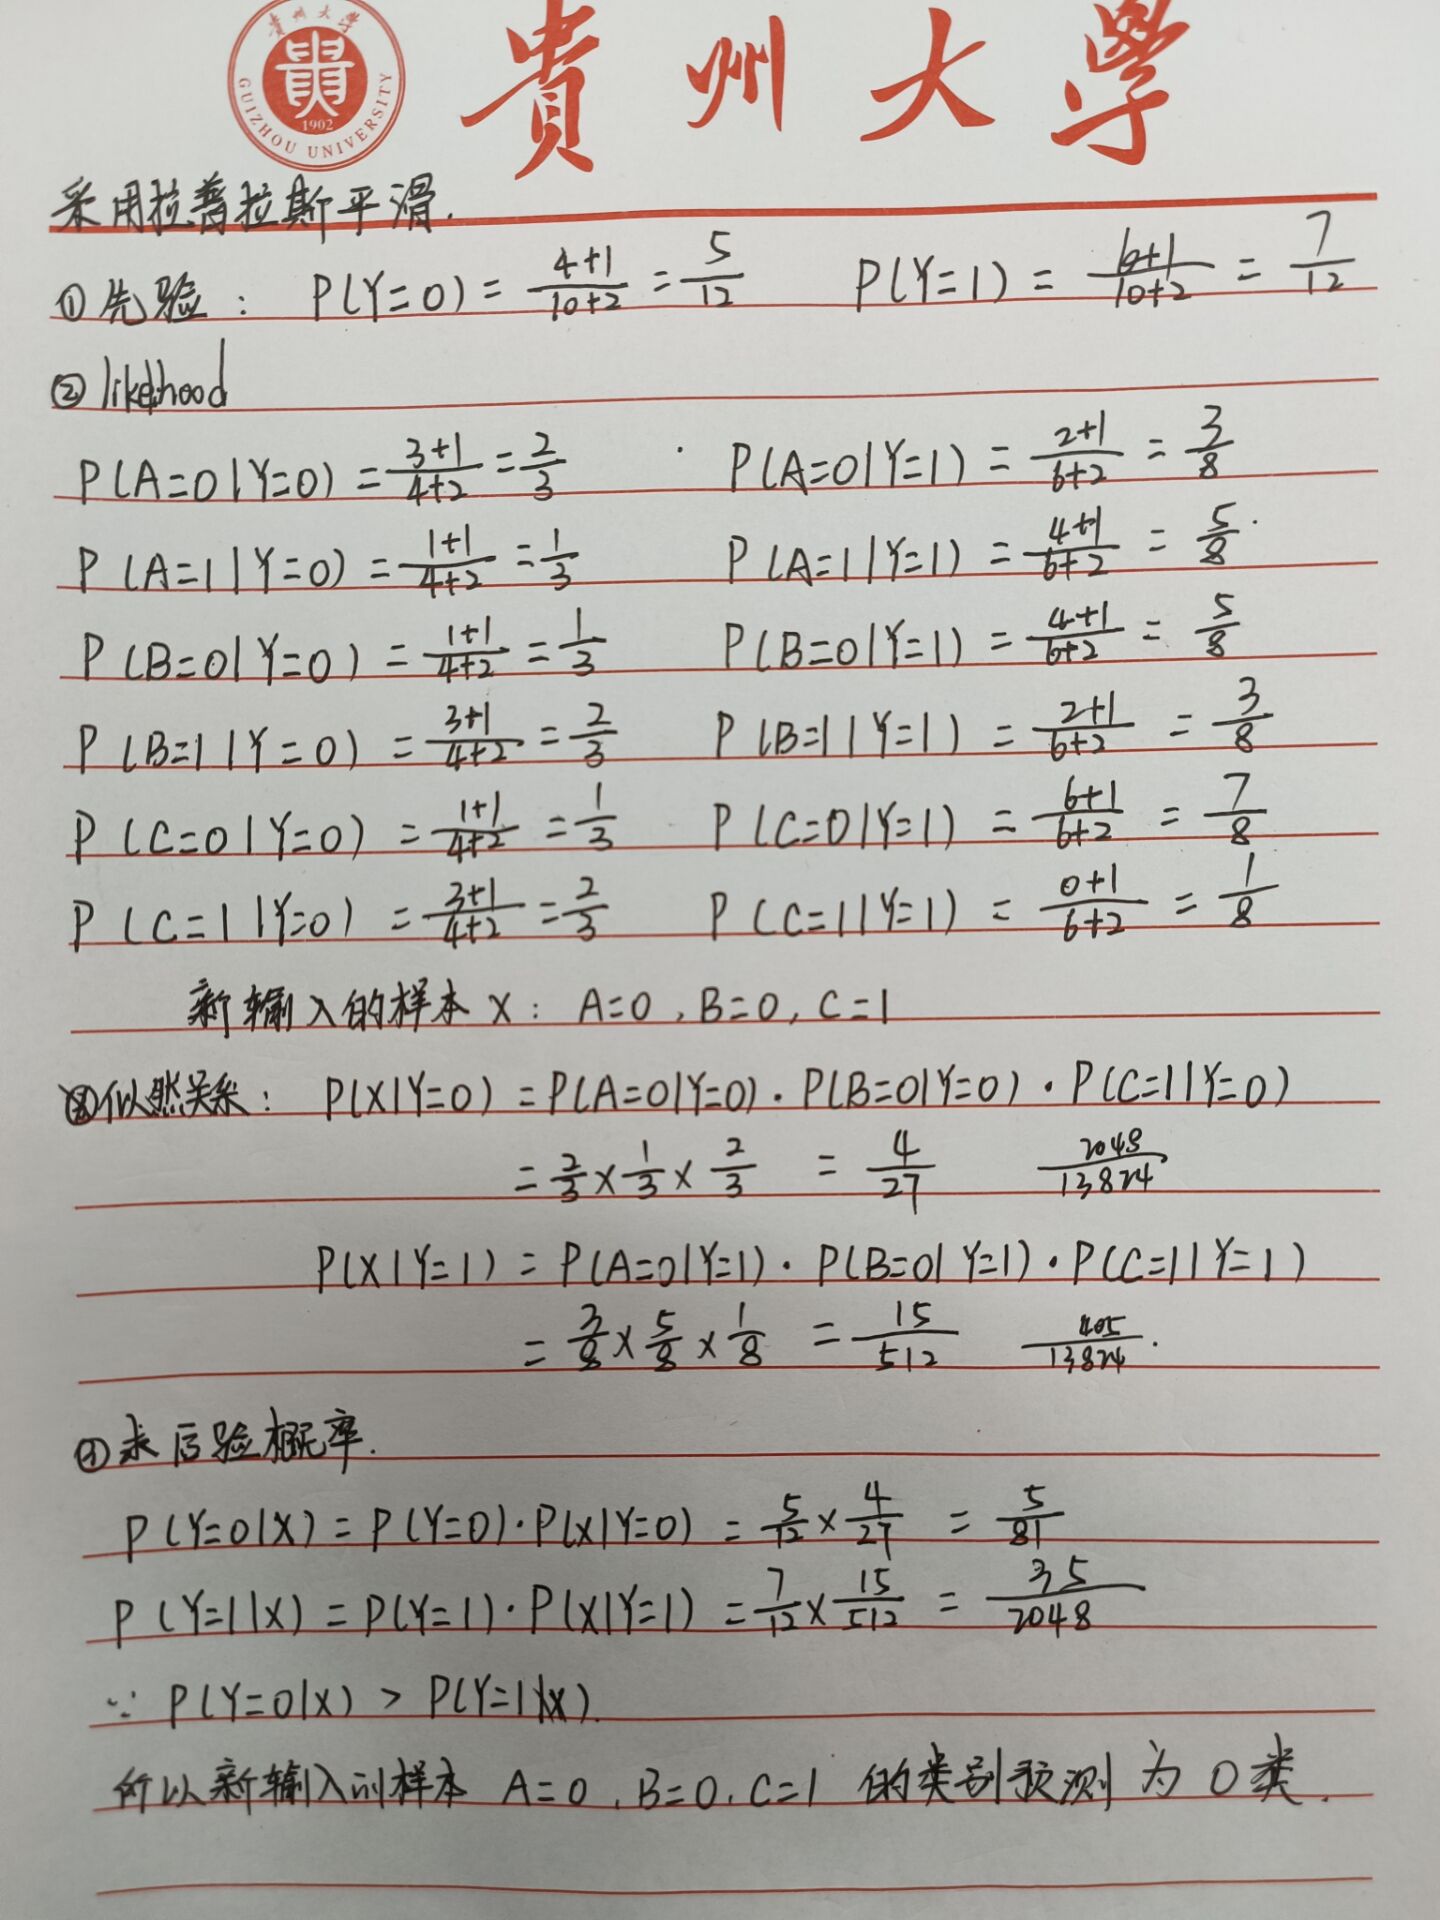 貴州大學
GUIZHOU UNIVERSITY
1902
貴州大學
采用拉普拉斯平滑.
①先验: P(Y=0) = (4+1)/(10+2) = 5/12 P(Y=1) = (6+1)/(10+2) = 7/12
② likelihood
P(A=0|Y=0) = (3+1)/(4+2) = 2/3 P(A=0|Y=1) = (2+1)/(6+2) = 3/8
P(A=1|Y=0) = (1+1)/(4+2) = 1/3 P(A=1|Y=1) = (4+1)/(6+2) = 5/8
P(B=0|Y=0) = (1+1)/(4+2) = 1/3 P(B=0|Y=1) = (4+1)/(6+2) = 5/8
P(B=1|Y=0) = (3+1)/(4+2) = 2/3 P(B=1|Y=1) = (2+1)/(6+2) = 3/8
P(C=0|Y=0) = (1+1)/(4+2) = 1/3 P(C=0|Y=1) = (6+1)/(6+2) = 7/8
P(C=1|Y=0) = (3+1)/(4+2) = 2/3 P(C=1|Y=1) = (0+1)/(6+2) = 1/8
新输入的样本X: A=0, B=0, C=1
③似然关系: P(X|Y=0) = P(A=0|Y=0)·P(B=0|Y=0)·P(C=1|Y=0)
= 2/3 × 1/3 × 2/3 = 4/27 2048/13824
P(X|Y=1) = P(A=0|Y=1)·P(B=0|Y=1)·P(C=1|Y=1)
= 3/8 × 5/8 × 1/8 = 15/512 405/13824.
④求后验概率.
P(Y=0|X) = P(Y=0)·P(X|Y=0) = 5/12 × 4/27 = 5/81
P(Y=1|X) = P(Y=1)·P(X|Y=1) = 7/12 × 15/512 = 35/2048
∵ P(Y=0|X) > P(Y=1|X).
所以新输入的样本 A=0, B=0, C=1 的类别预测为0类.